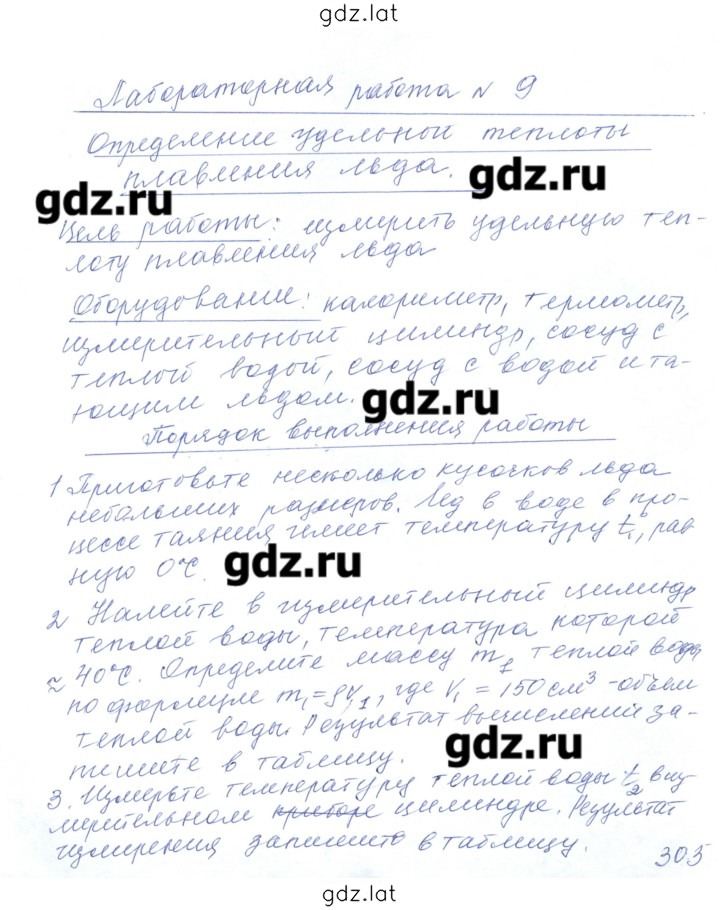 gdz.lat
Лабораторная работа № 9
Определение удельной теплоты
плавления льда.
gdz.ru
gdz.ru
Цель работы: измерить удельную теп-
лоту плавления льда
Оборудование: калориметр, термометр,
измерительный цилиндр, сосуд с
теплой водой, сосуд с водой и та-
ющим льдом.
gdz.ru
Порядок выполнения работы
1 Приготовьте несколько кусочков льда
небольших размеров. Лёд в воде в про-
цессе таяния имеет температуру t₁, рав
ную 0°C.
gdz.ru
2 Налейте в измерительный цилиндр
теплой воды, температура которой
≈ 40°C. Определите массу m₁ теплой воды
по формуле m₁=ρV₁, где V₁ = 150 см³ -объем
теплой воды. Результат вычислений за-
пишите в таблицу.
gdz.ru
3. Измерьте температуру теплой воды t₂ в из
мерительном приборе цилиндре. Результат
измерения запишите в таблицу.
305
gdz.lat